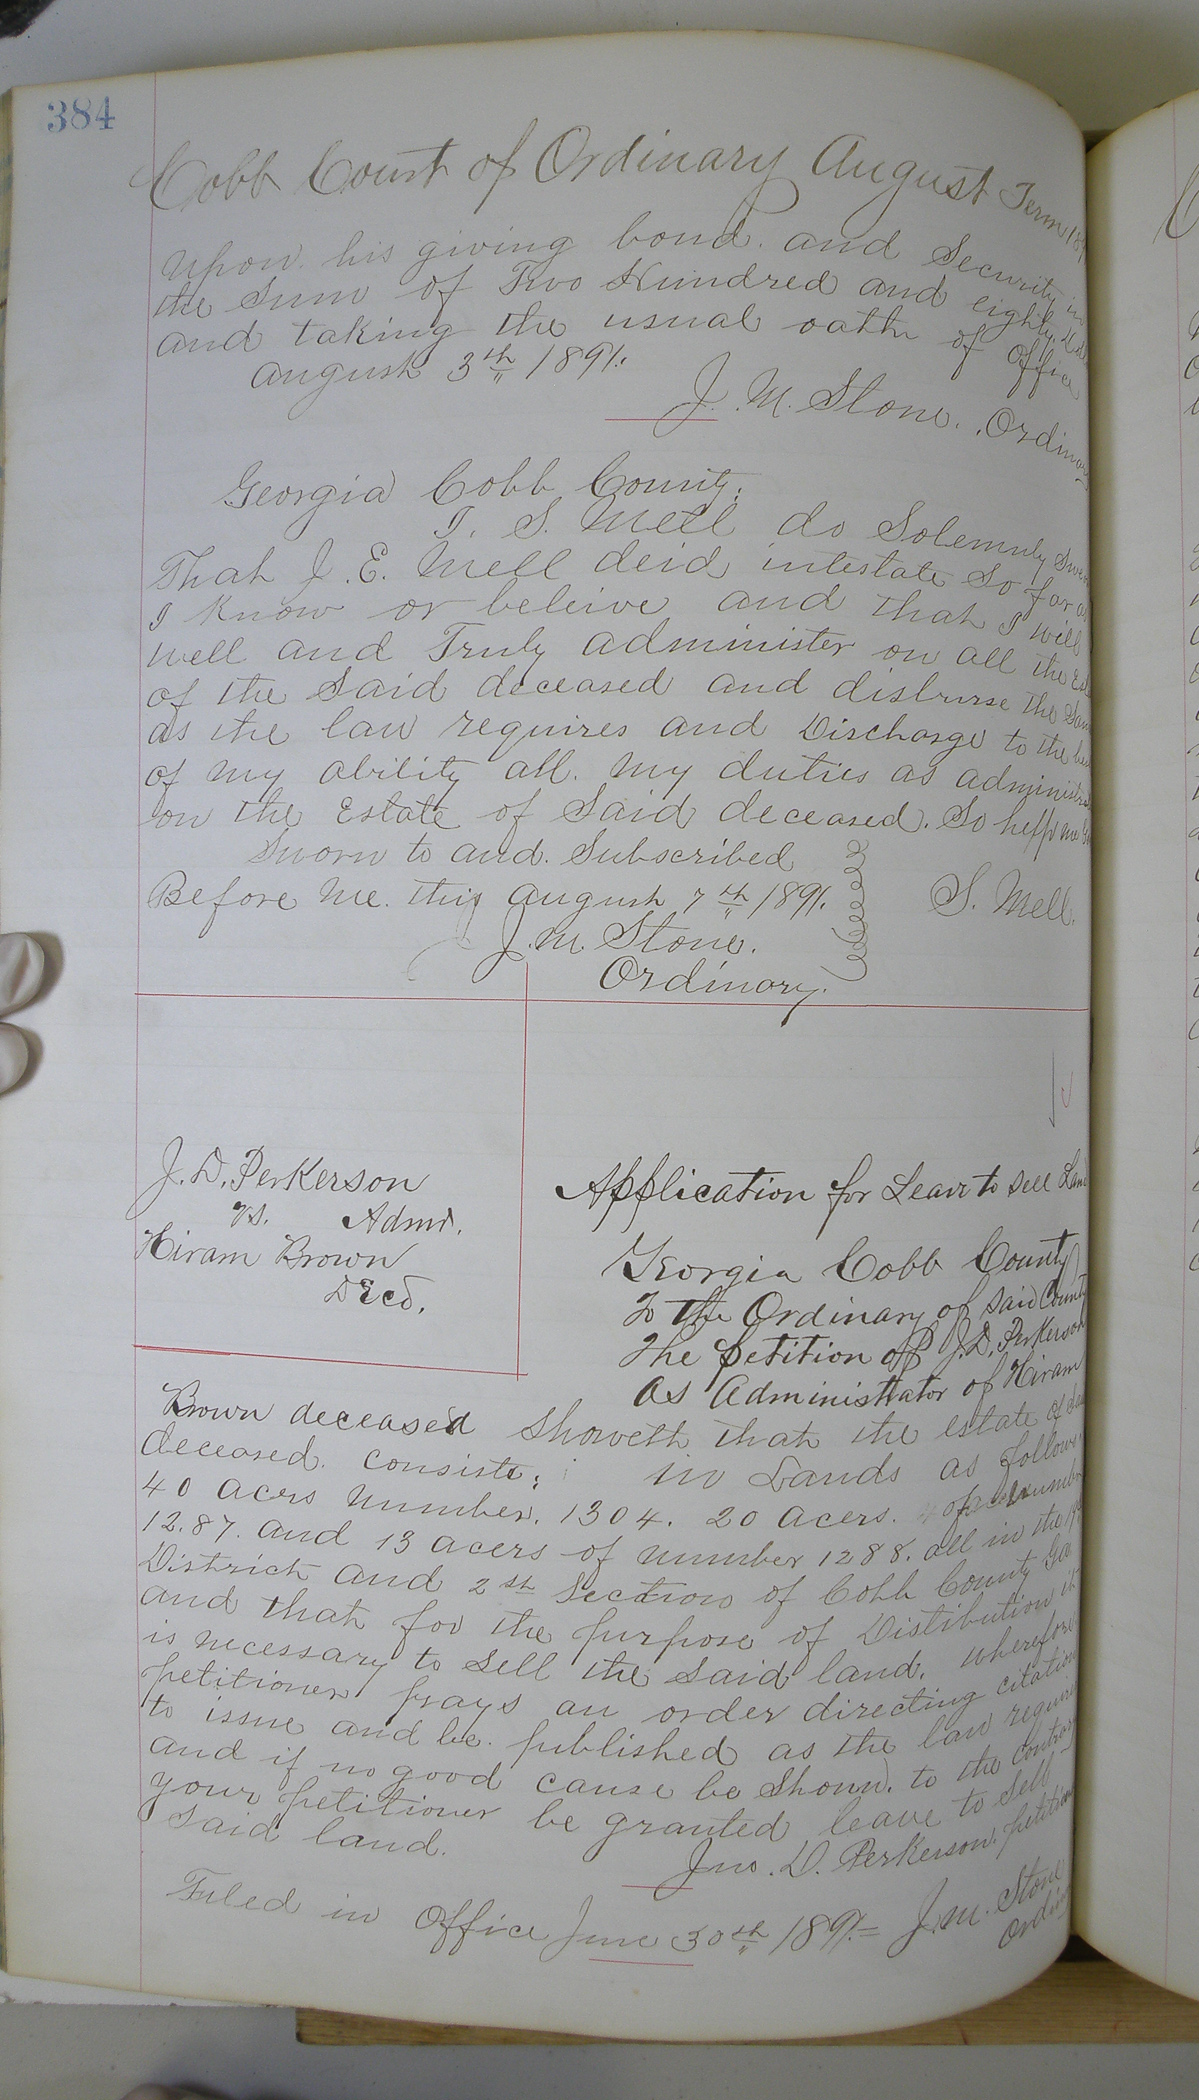 384
Cobb Court of Ordinary August Term 189
upon his giving bond. and Security in
the Sum of Two Hundred and eighty
and taking the usual oath of office
August 3th 1891.
J. M. Stone. Ordinary
Georgia Cobb County.
I. S. Mell do Solemnly Swear
That J. E. Mell deid intestate So far as
I know or beleive and that I will
well and Truly administer on all the
of the Said deceased and disburse the Same
as the law requires and Discharge to the best
of my ability all. my duties as administrator
on the Estate of Said deceased. So help me
Sworn to and. Subscribed
Before me. this August 7th 1891. S. Mell.
J. M. Stone.
Ordinary.
J. D. Perkerson
vs. Admr.
Hiram Brown
Decd.
Application for Leave to Sell Land
Georgia Cobb County
To the Ordinary of Said County
The petition of J. D. Perkerson
As Administrator of Hiram
Brown deceased Showeth that the estate of
deceased. consists; in Lands as follows
40 acers number. 1304. 20 acers. of number
12.87. and 13 acers of number 1288. all in the 19
District and 2th Section of Cobb County Ga
and that for the purpose of Distribution it
is necessary to Sell the Said land. wherefore
petitioner prays an order directing citation
to issue and be. published as the law requires
and if no good cause be Shown. to the contrary
your petitioner be granted leave to Sell
Said land.
Jno. D. Perkerson. petitioner
Filed in Office June 30th 1891= J. M. Stone
Ordinary